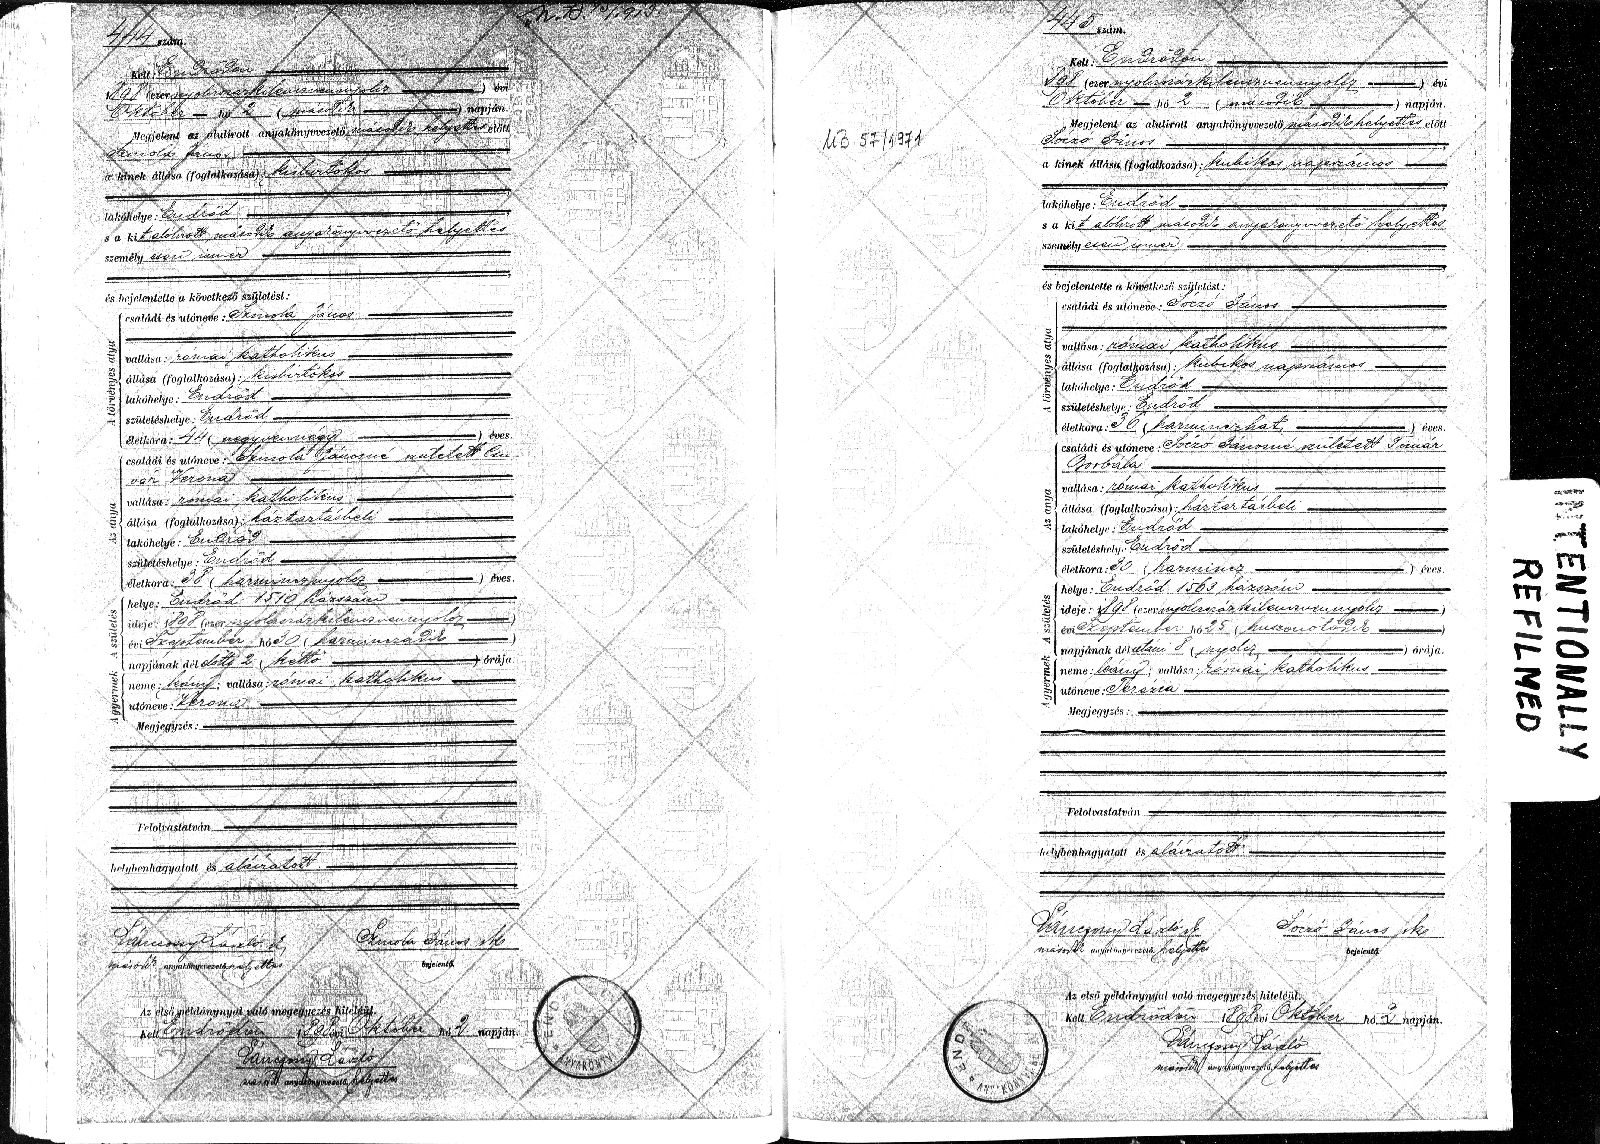 444 szám.
Kelt: Endrődön
1898 (ezernyolczszázkilenczvennyolcz) évi
Október hó 2 (második) napján.
Megjelent az alulirott anyakönyvvezető második helyettes előtt
Szmola János
a kinek állása (foglalkozása): kisbirtokos
lakóhelye: Endrőd
s a kit alólirott második anyakönyvvezető helyettes
személyesen ismer
és bejelentette a következő születést:
A törvényes atya
családi és utóneve: Szmola János
vallása: római katholikus
állása (foglalkozása): kisbirtokos
lakóhelye: Endrőd
születéshelye: Endrőd
életkora: 44 (negyvennégy) éves.
Az anya
családi és utóneve: Szmola Jánosné született
Verona
vallása: római katholikus
állása (foglalkozása): háztartásbeli
lakóhelye: Endrőd
születéshelye: Endrőd
életkora: 38 (harmincznyolcz) éves.
A születés
helye: Endrőd 1510 házszám
ideje: 1898 (ezernyolczszázkilenczvennyolcz)
évi Szeptember hó 30 (harminczadik)
napjának délelőtti 2 (kettő) órája.
A gyermek
neme: leány; vallása: római katholikus
utóneve: Verona
Megjegyzés:
Felolvastatván
helybenhagyatott és aláiratott
László
Szmola János
második anyakönyvvezető helyettes
bejelentő.
Az első példánynyal való megegyezés hiteléül.
Kelt Endrődön 1898 évi Október hó 2 napján.
László
második anyakönyvvezető helyettes
445 szám.
Kelt: Endrődön
1898 (ezernyolczszázkilenczvennyolcz) évi
Október hó 2 (második) napján.
MB 57/1971
Megjelent az alulirott anyakönyvvezető második helyettes előtt
Soczó János
a kinek állása (foglalkozása): kubikos napszámos
lakóhelye: Endrőd
s a kit alólirott második anyakönyvvezető helyettes
személyesen ismer
és bejelentette a következő születést:
A törvényes atya
családi és utóneve: Soczó János
vallása: római katholikus
állása (foglalkozása): kubikos napszámos
lakóhelye: Endrőd
születéshelye: Endrőd
életkora: 36 (harminczhat) éves.
Az anya
családi és utóneve: Soczó Jánosné született Timár
Borbála
vallása: római katholikus
állása (foglalkozása): háztartásbeli
lakóhelye: Endrőd
születéshely: Endrőd
életkora: 30 (harmincz) éves.
A születés
helye: Endrőd 1563 házszám
ideje: 1898 (ezernyolczszázkilenczvennyolcz)
évi Szeptember hó 25 (huszonötödik)
napjának délutáni 8 (nyolcz) órája.
A gyermek
neme: leány; vallása: római katholikus
utóneve: Terézia
Megjegyzés:
Felolvastatván
helybenhagyatott és aláiratott
László
Soczó János
második anyakönyvvezető helyettes
bejelentő.
Az első példánynyal való megegyezés hiteléül.
Kelt Endrődön 1898 évi Október hó 2 napján.
László
második anyakönyvvezető helyettes
INTENTIONALLY
REFILMED